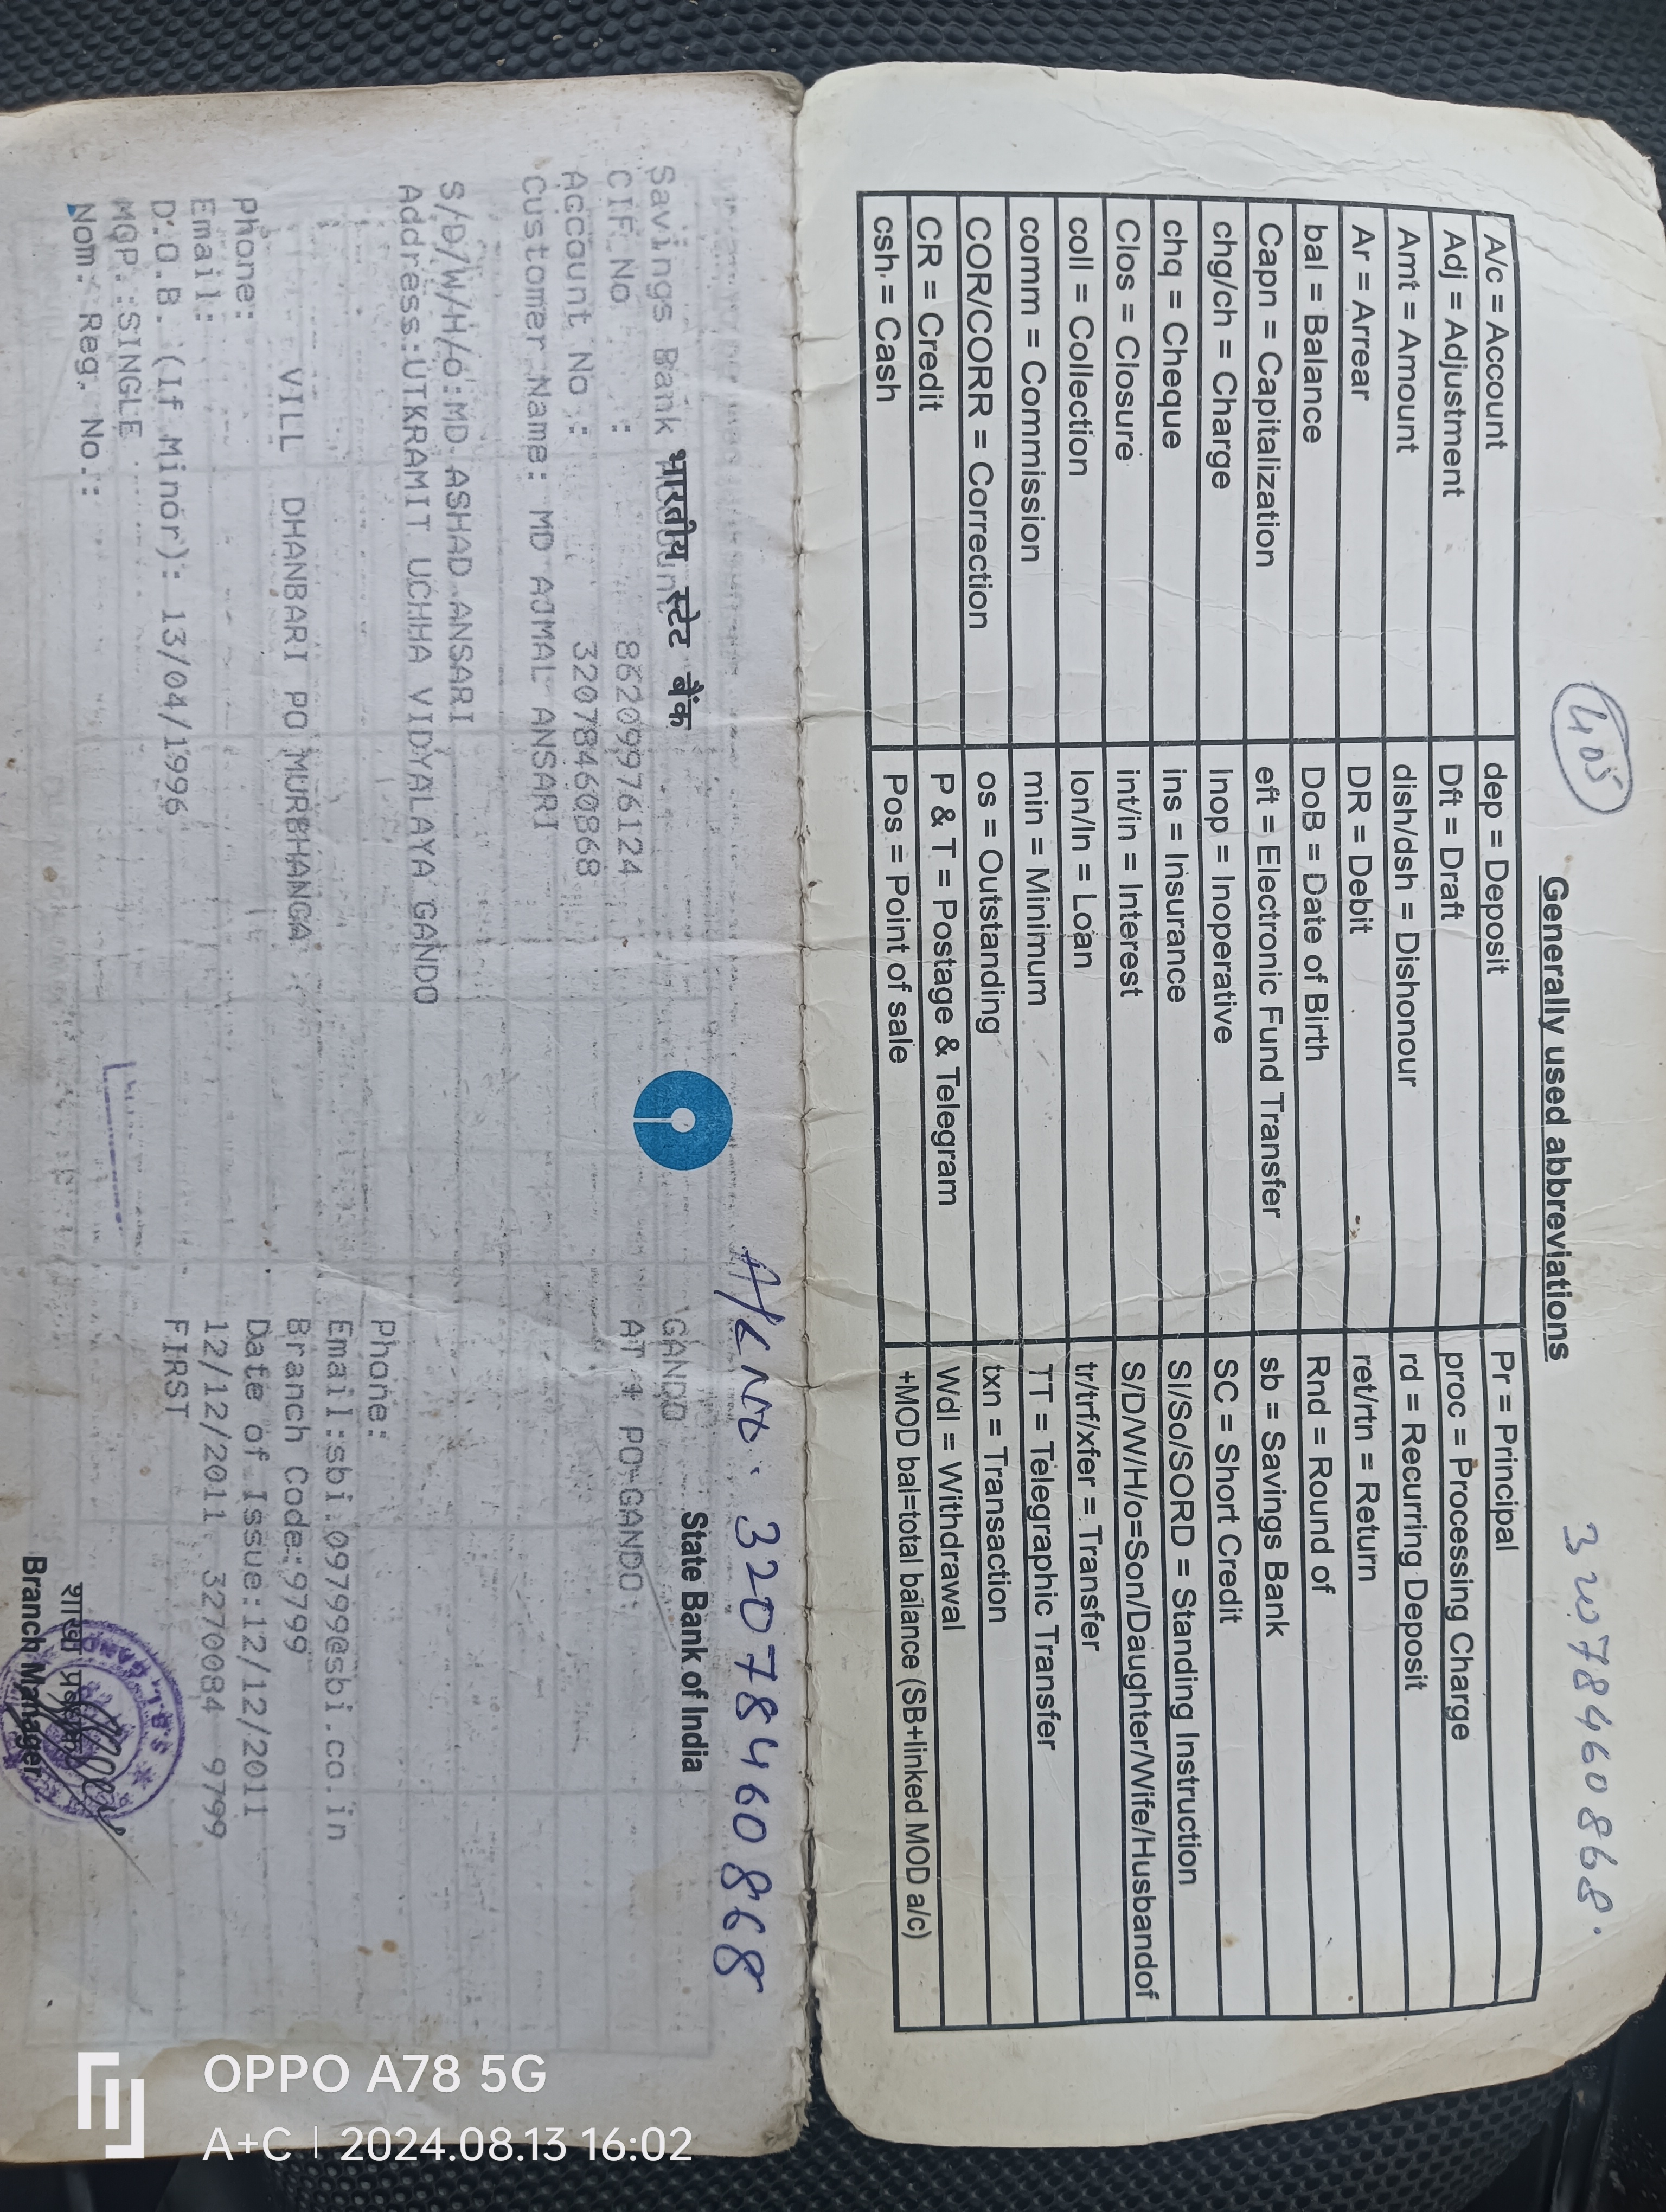 405
32078460868.
Generally used abbreviations
A/c = Account | dep = Deposit | Pr = Principal
Adj = Adjustment | Dft = Draft | proc = Processing Charge
Amt = Amount | dish/dsh = Dishonour | rd = Recurring Deposit
Ar = Arrear | DR = Debit | ret/rtn = Return
bal = Balance | DoB = Date of Birth | Rnd = Round of
Capn = Capitalization | eft = Electronic Fund Transfer | sb = Savings Bank
chg/ch = Charge | Inop = Inoperative | SC = Short Credit
chq = Cheque | ins = Insurance | SI/So/SORD = Standing Instruction
Clos = Closure | int/in = Interest | S/D/W/H/o=Son/Daughter/Wife/Husbandof
coll = Collection | lon/ln = Loan | tr/trf/xfer = Transfer
comm = Commission | min = Minimum | TT = Telegraphic Transfer
COR/CORR = Correction | os = Outstanding | txn = Transaction
CR = Credit | P & T = Postage & Telegram | Wdl = Withdrawal
csh = Cash | Pos = Point of sale | +MOD bal=total balance (SB+linked MOD a/c)
A/c No. 32078460868
भारतीय स्टेट बैंक State Bank of India
Savings Bank Account GANDO
CIF No : 86209976124 AT + PO-GANDO
Account No : 32078460868
Customer Name: MD AJMAL ANSARI
S/D/W/H/o:MD ASHAD ANSARI
Address:UTKRAMIT UCHHA VIDYALAYA GANDO
Phone:
Email:sbi.09799@sbi.co.in
VILL DHANBARI PO MURBHANGA Branch Code:9799
Phone: Date of Issue:12/12/2011
Email: 12/12/2011 3270084 9799
D.O.B. (If Minor): 13/04/1996 FIRST
MOP.:SINGLE
Nom: Reg. No.:
शाखा प्रबंधक
Branch Manager
OPPO A78 5G
A+C | 2024.08.13 16:02